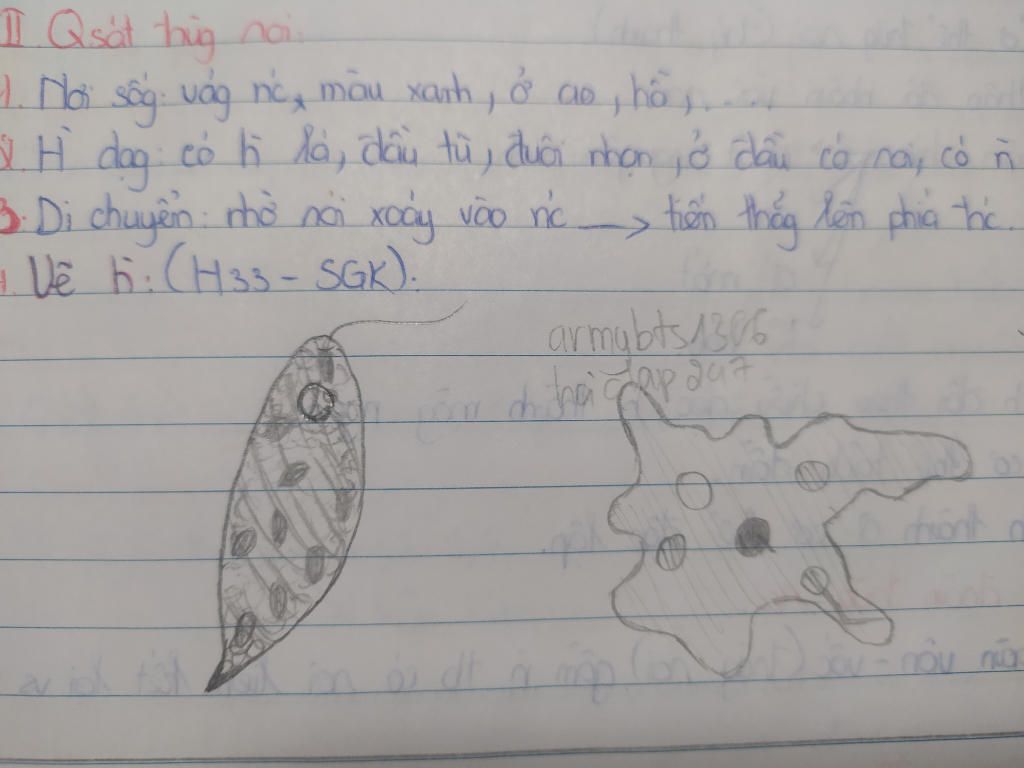 II Qsát tùg roi.
1. Nơi sốg: vág nc, màu xanh, ở ao, hồ, ...
2. H dạg: có h lá, đầu tù, đuôi nhọn, ở đầu có roi, có n
3. Di chuyển: nhờ roi xoáy vào nc → tiến thẳg lên phía tc.
4. Vẽ h: (H33 - SGK).
armybts1306
hoidap247